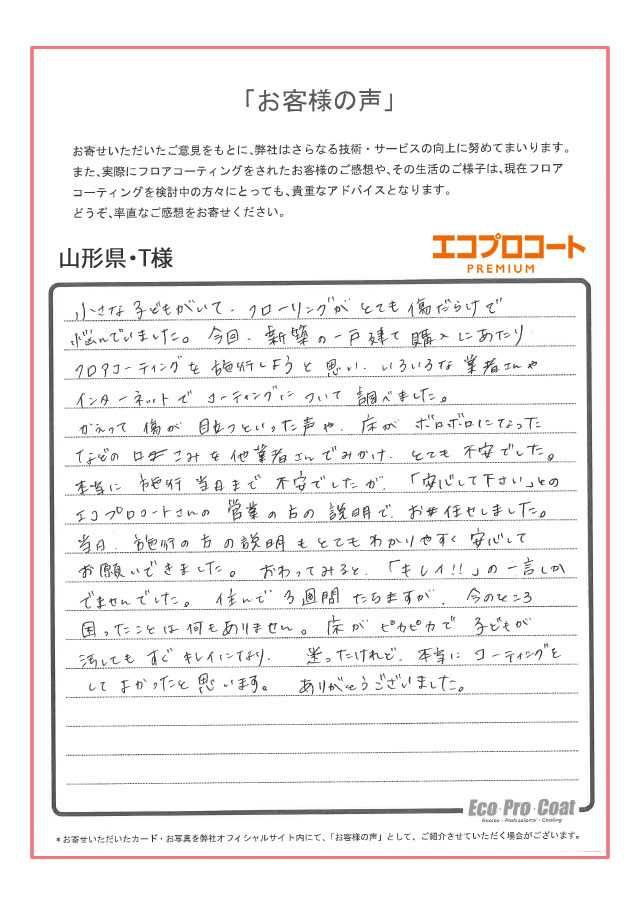 「お客様の声」
お寄せいただいたご意見をもとに、弊社はさらなる技術・サービスの向上に努めてまいります。
また、実際にフロアコーティングをされたお客様のご感想や、その生活のご様子は、現在フロア
コーティングを検討中の方々にとっても、貴重なアドバイスとなります。
どうぞ、率直なご感想をお寄せください。
山形県・T様
エコプロコート
PREMIUM
小さな子どもがいて、フローリングがとても傷だらけで
悩んでいました。今回、新築の一戸建て購入にあたり
フロアコーティングを施行しようと思い、いろいろな業者さんや
インターネットでコーティングについて調べました。
かえって傷が目立つといった声や、床がボロボロになった
などの口コミを他業者さんでみかけ、とても不安でした。
本当に施行当日まで不安でしたが、「安心して下さい」との
エコプロコートさんの営業の方の説明で、お任せしました。
当日、施行の方の説明もとてもわかりやすく安心して
お願いできました。おわってみると、「キレイ!!」の一言しか
でませんでした。住んで3週間たちますが、今のところ
困ったことは何もありません。床がピカピカで子どもが
汚してもすぐキレイになり、迷ったけれど、本当にコーティングを
してよかったと思います。ありがとうございました。
Eco・Pro・Coat
Ecotec・Professional・Coating
*お寄せいただいたカード・お写真を弊社オフィシャルサイト内にて、「お客様の声」として、ご紹介させていただく場合がございます。